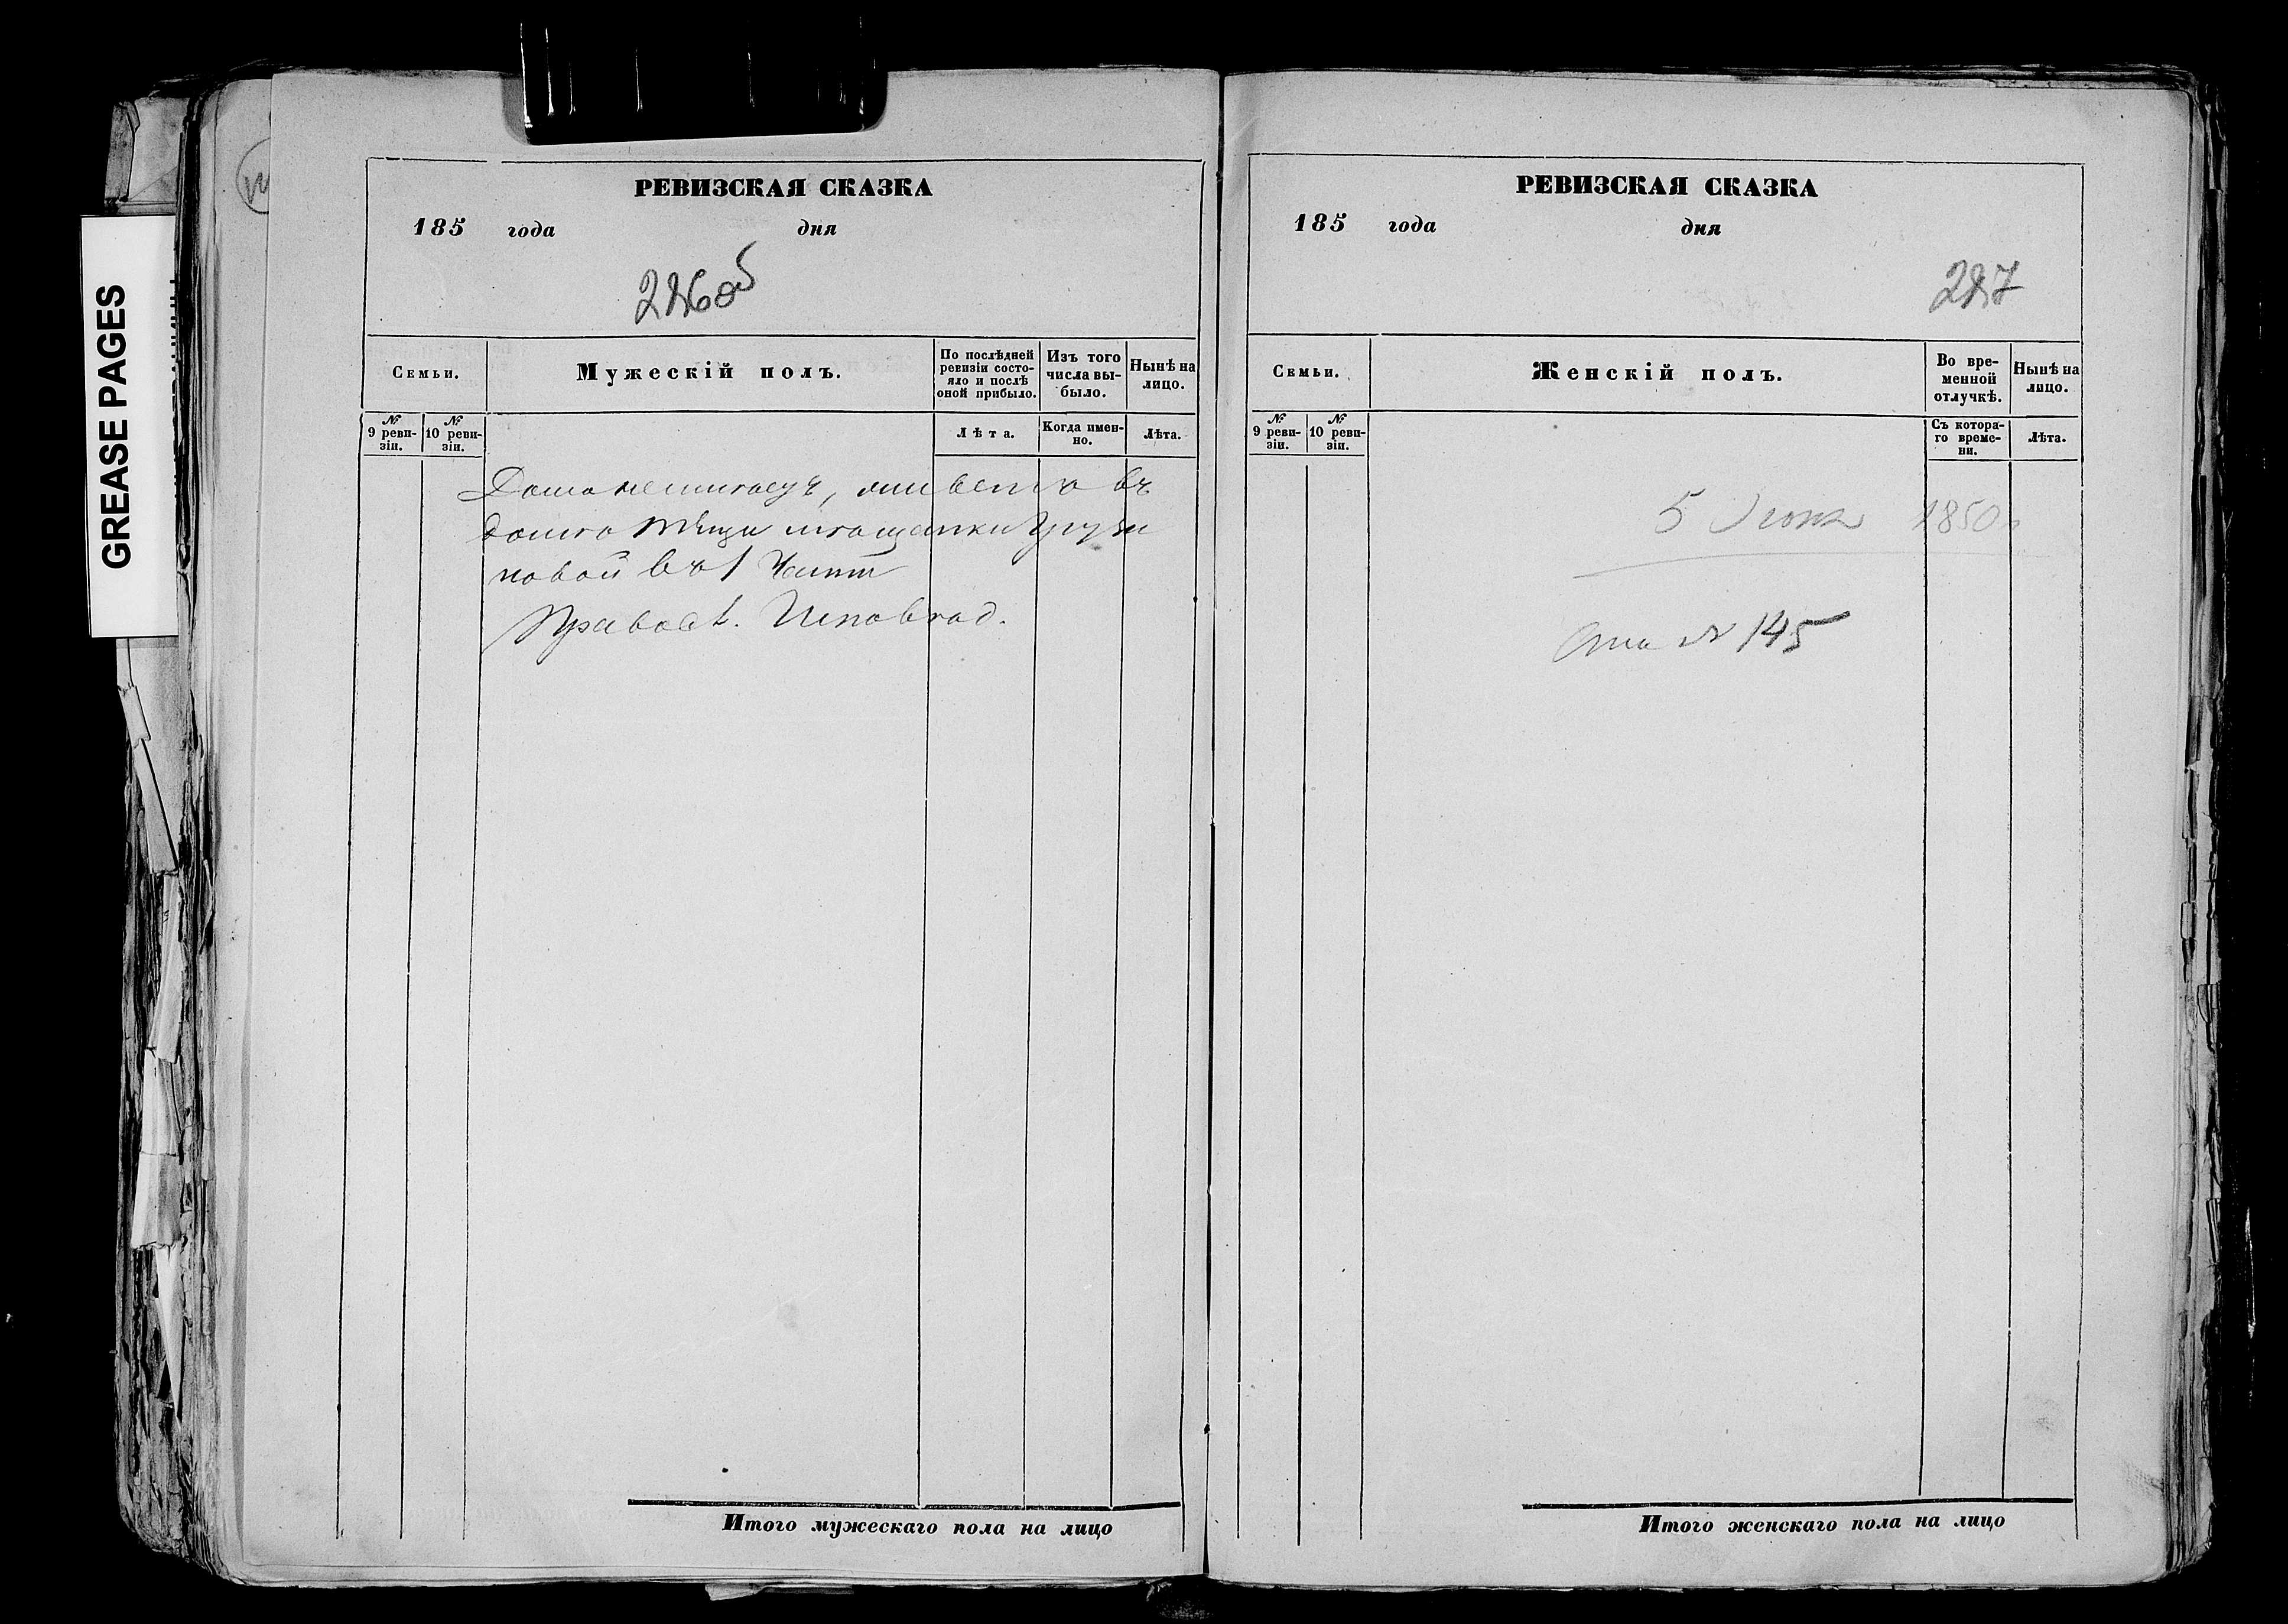 GREASE PAGES
РЕВИЗСКАЯ СКАЗКА
185 года дня
226об
Семьи.
Мужескій полъ.
По послѣдней ревизіи состояло и послѣ оной прибыло.
Изъ того числа выбыло.
Нынѣ на лицо.
№ 9 ревизіи.
№ 10 ревизіи.
Лѣта.
Когда именно.
Лѣта.
въ
домѣ тѣщи мѣщанки Грузи
новой въ 1 Части
Православ. Исповѣд.
Итого мужескаго пола на лицо
РЕВИЗСКАЯ СКАЗКА
185 года дня
227
Семьи.
Женскій полъ.
Во временной отлучкѣ.
Нынѣ на лицо.
№ 9 ревизіи.
№ 10 ревизіи.
Съ котораго времени.
Лѣта.
5 1850
№ 145
Итого женскаго пола на лицо